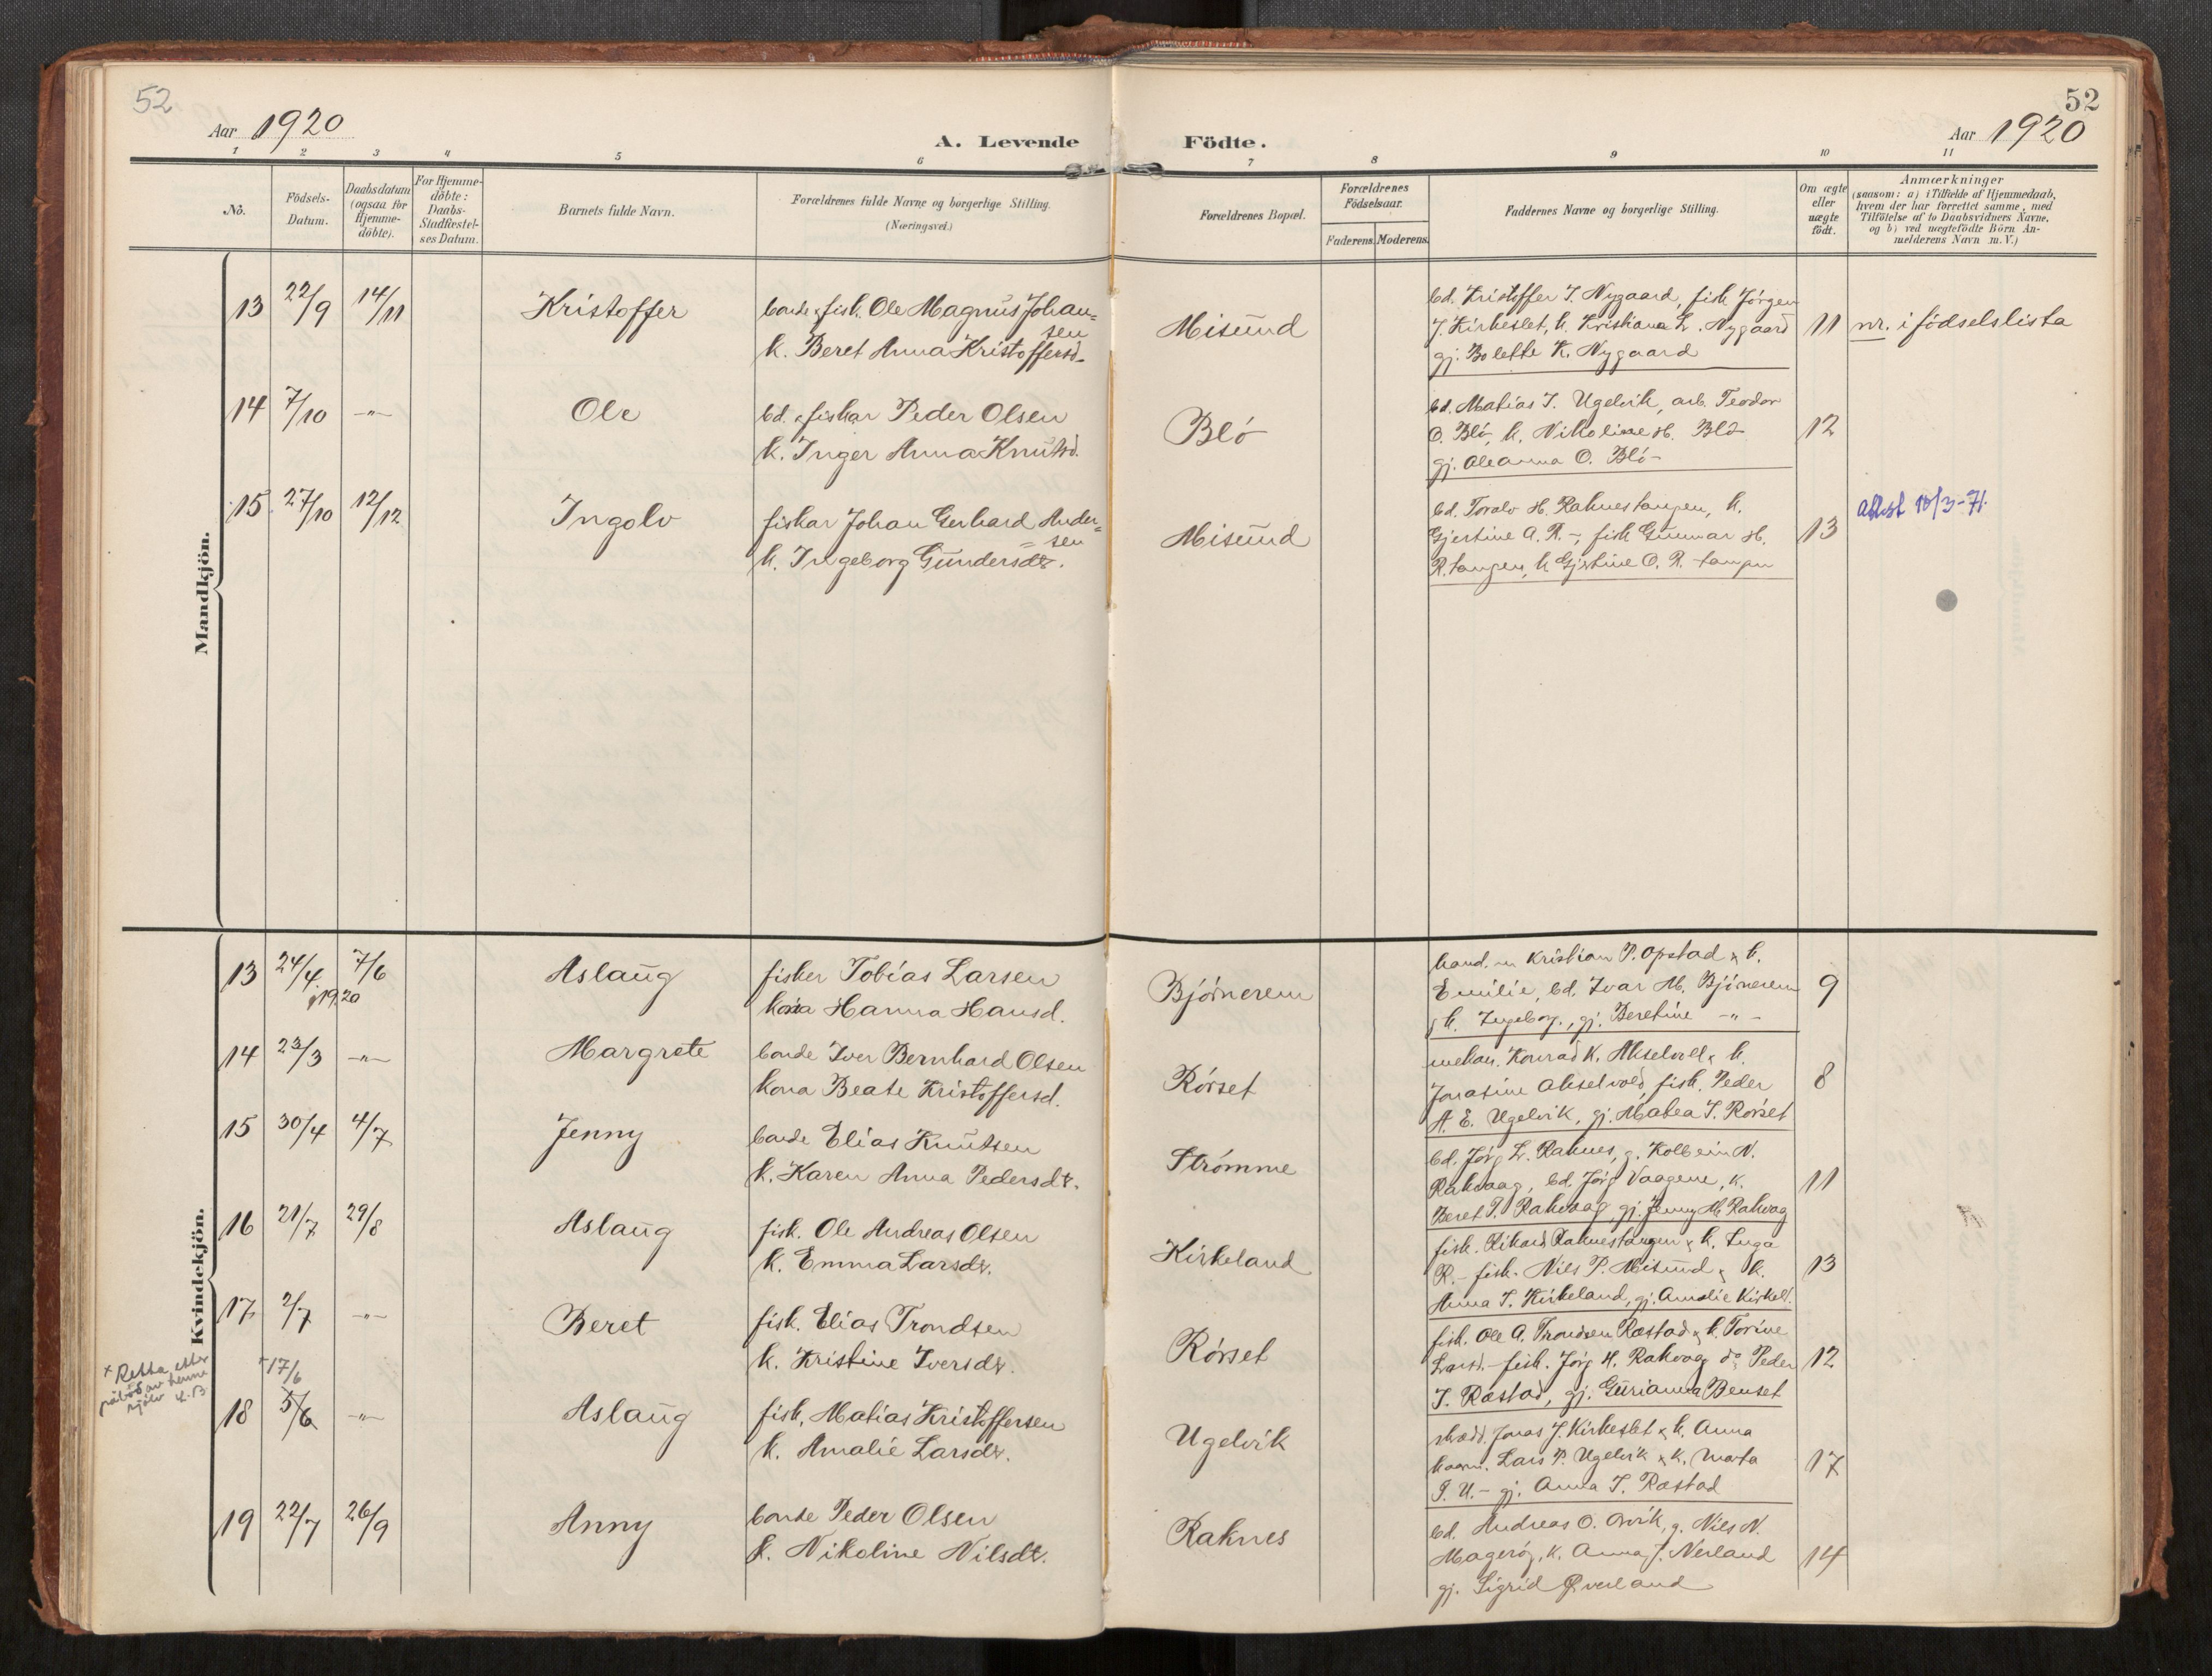 52
Aar 1920
A. Levende
Födte.
52
Aar 1920
1 2 3 4 5 6 7 8 9 10 11
No.
Födsels-
Datum.
Daabsdatum
(ogsaa for
Hjemme-
döbte).
For Hjemme-
döbte:
Daabs-
Stadfæstel-
ses Datum.
Barnets fulde Navn.
Forældrenes fulde Navne og borgerlige Stilling.
(Næringsvei.)
Forældrenes Bopæl.
Forældrenes
Födselsaar.
Faderens. Moderens.
Faddernes Navne og borgerlige Stilling.
Om ægte
eller
uægte
födt.
Anmærkninger
(saasom: a) i Tilfælde af Hjemmedaab,
hvem der har forrettet samme, med
Tilföielse af to Daabsvidners Navne,
og b) ved uægtefödte Börn An-
melderens Navn m.V.)
Mandkjön.
13 22/9 14/11 Kristoffer
bonde & fisk. Ole Magnus Johan=
sen
k. Beret Anna Kristoffersd.
Misund
bd. Kristoffer J. Nygaard, fisk Jörgen
J. Kirkeslet, k. Kristiana L. Nygaard
gj. Bolette K. Nygaard
11 nr. i födselslista
14 7/10 -"- Ole
bd. & fiskar Peder Olsen
k. Inger Anna Knutsd.
Blö
bd. Matias J. Ugelvik, arb. Teodor
O. Blö, k. Nikoline H. Blö
gj. Oleanna O. Blö-
12
15 27/10 12/12 Ingolv
fiskar Johan Gerhard Ander=
=sen
k. Ingeborg Gundersdtr.
Misund
bd. Toralv H. Raknestangen, k.
Gjertine A. R.-, fisk Gunnar H.
R.tangen, k Gjertine O. R.-tangen
13 Attest 10/3-71.
Kvindekjön.
13 24/4 1920 7/6 Aslaug
fisker Tobias Larsen
kona Hanna Hansd.
Björnerem
hand. m Kristian P. Opstad & k.
Emilie, bd. Ivar M. Björnerem
& k. Ingeborg., gj. Beretine -"-
9
14 23/3 -"- Margrete
bonde Iver Bernhard Olsen
kona Beate Kristoffersd.
Rörset
mekan. Konrad K. Akselvoll & k.
Jonatine Akselvold, fisk. Peder
A. E. Ugelvik, gj. Matea J. Rörset
8
15 30/4 4/7 Jenny
bonde Elias Knutsen
k. Karen Anna Pedersdtr.
Strömme
bd. Jörg. L. Raknes, g. Kolbein N.
Rakvaag, bd. Jörg Vaagene, k.
Beret P. Rakvaag, gj. Jenny M. Rakvag
11
16 21/7 29/8 Aslaug
fisk. Ole Andreas Olsen
k. Emma Larsdtr.
Kirkeland
fisk. Rikard Raknestangen & k. Inga
R.- fisk. Nils P. Misund & k.
Anna J. Kirkeland, gj. Amalie Kirkel.
13
17 2/7 -"- Beret
fisk. Elias Trondsen
k. Kristine Iversdtr.
Rörset
fisk. Ole A. Trondsen Ræstad & k. Torine
Larsd.- fisk. Jörg H. Rakvag do Peder
J. Ræstad, gj. Gurianna Benset
12
+ Retta etter
påbod av henne
sjølv
+17/6
18 5/6 -"- Aslaug
fisk. Matias Kristoffersen
k. Amalie Larsdtr.
Ugelvik
skrædd. Jonas J. Kirkeslet & k. Anna
Lars P. Ugelvik & k. Marta
P. U.- gj. Anna J. Ræstad
17
19 22/7 26/9 Anny
bonde Peder Olsen
k. Nikoline Nilsdtr.
Raknes
bd. Andreas O. Orvik, g. Nils N.
Mageröy, k. Anna J. Nerland
gj. Sigrid Øverland
14